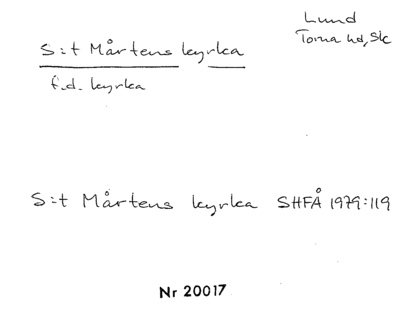 Lund
Torna hd, Sk
S:t Mårtens kyrka
f.d. kyrka
S:t Mårtens kyrka SHFÅ 1979:119
Nr 20017